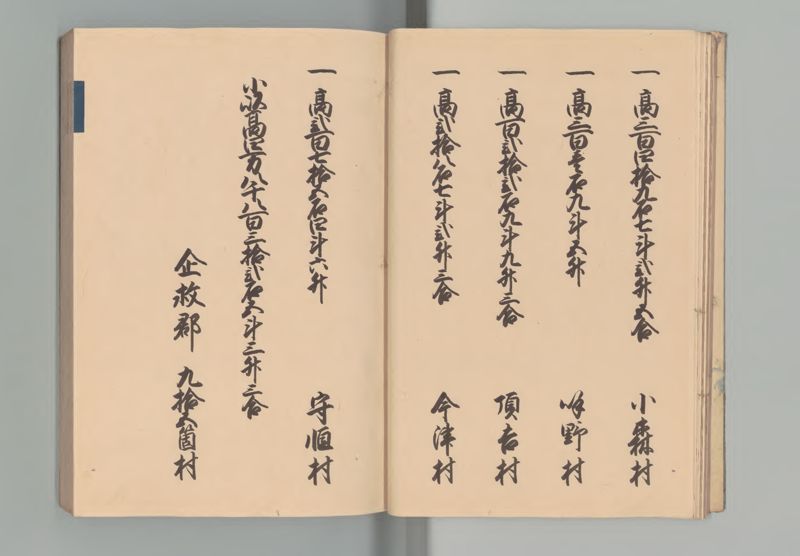 一 高三百四拾九石七斗弐升五合 小森村
一 高三百壱石九斗五升 呼野村
一 高百弐拾弐石九斗九升三合 頂吉村
一 高弐拾八石七斗弐升三合 今津村
一 高弐百七拾五石四斗六升 守恒村
小以高四万八千八百三拾弐石五斗三升三合
企救郡 九拾五箇村